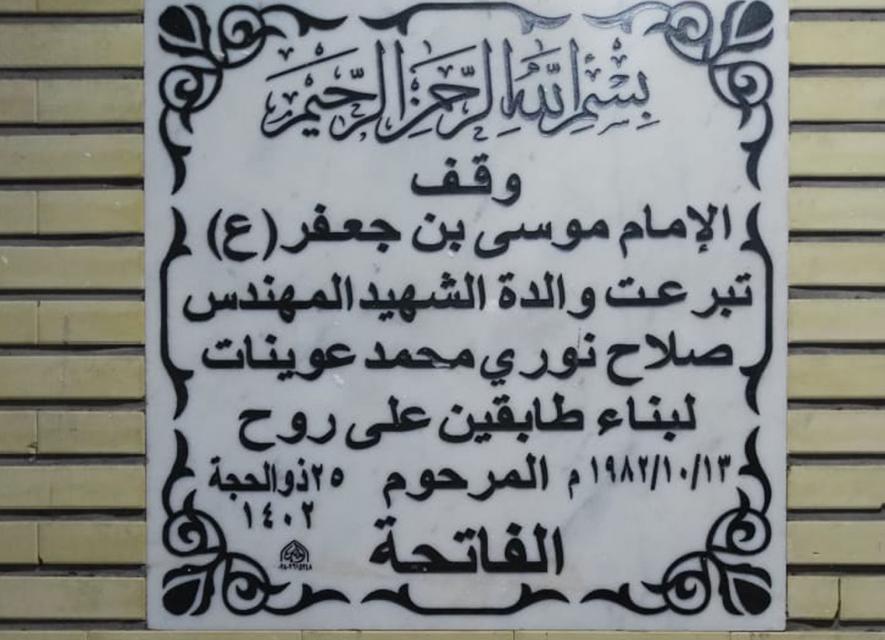 بسم الله الرحمن الرحيم
وقف
الإمام موسى بن جعفر (ع)
تبرعت والدة الشهيد المهندس
صلاح نوري محمد عوينات
لبناء طابقين على روح
١٩٨٢/١٠/١٣ م المرحوم ٢٥ ذوالحجة
١٤٠٢
الفاتحة